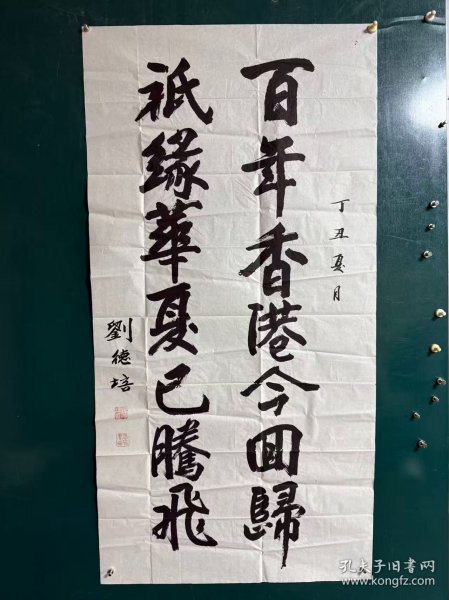 百年香港今回歸
丁丑夏月
祇緣華夏已騰飛
劉德培
孔夫子旧书网
www.kongfz.com